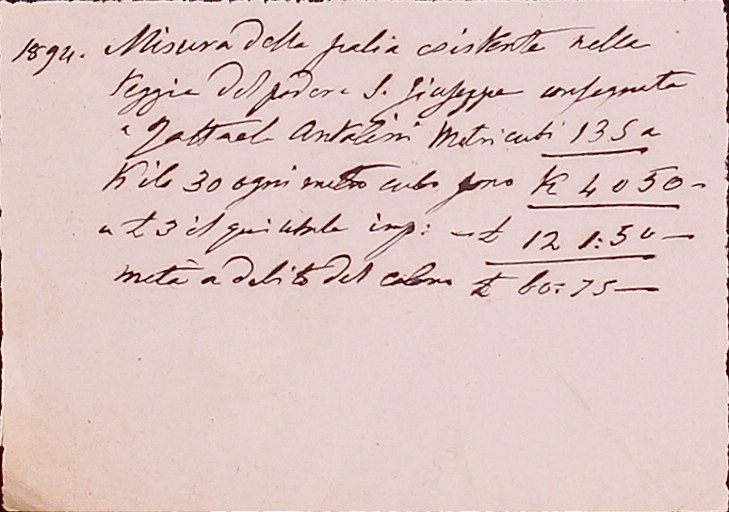 1894. Misura della palia esistente nella
teggia del podere S. Giuseppe consegnata
a Raffaele Antolini Metri cubi 135 a
Kilo 30 ogni metro cubo sono K 4050 -
a £ 3 il quintale imp: - £ 121:50 -
metà a debito del colono £ 60:75 -